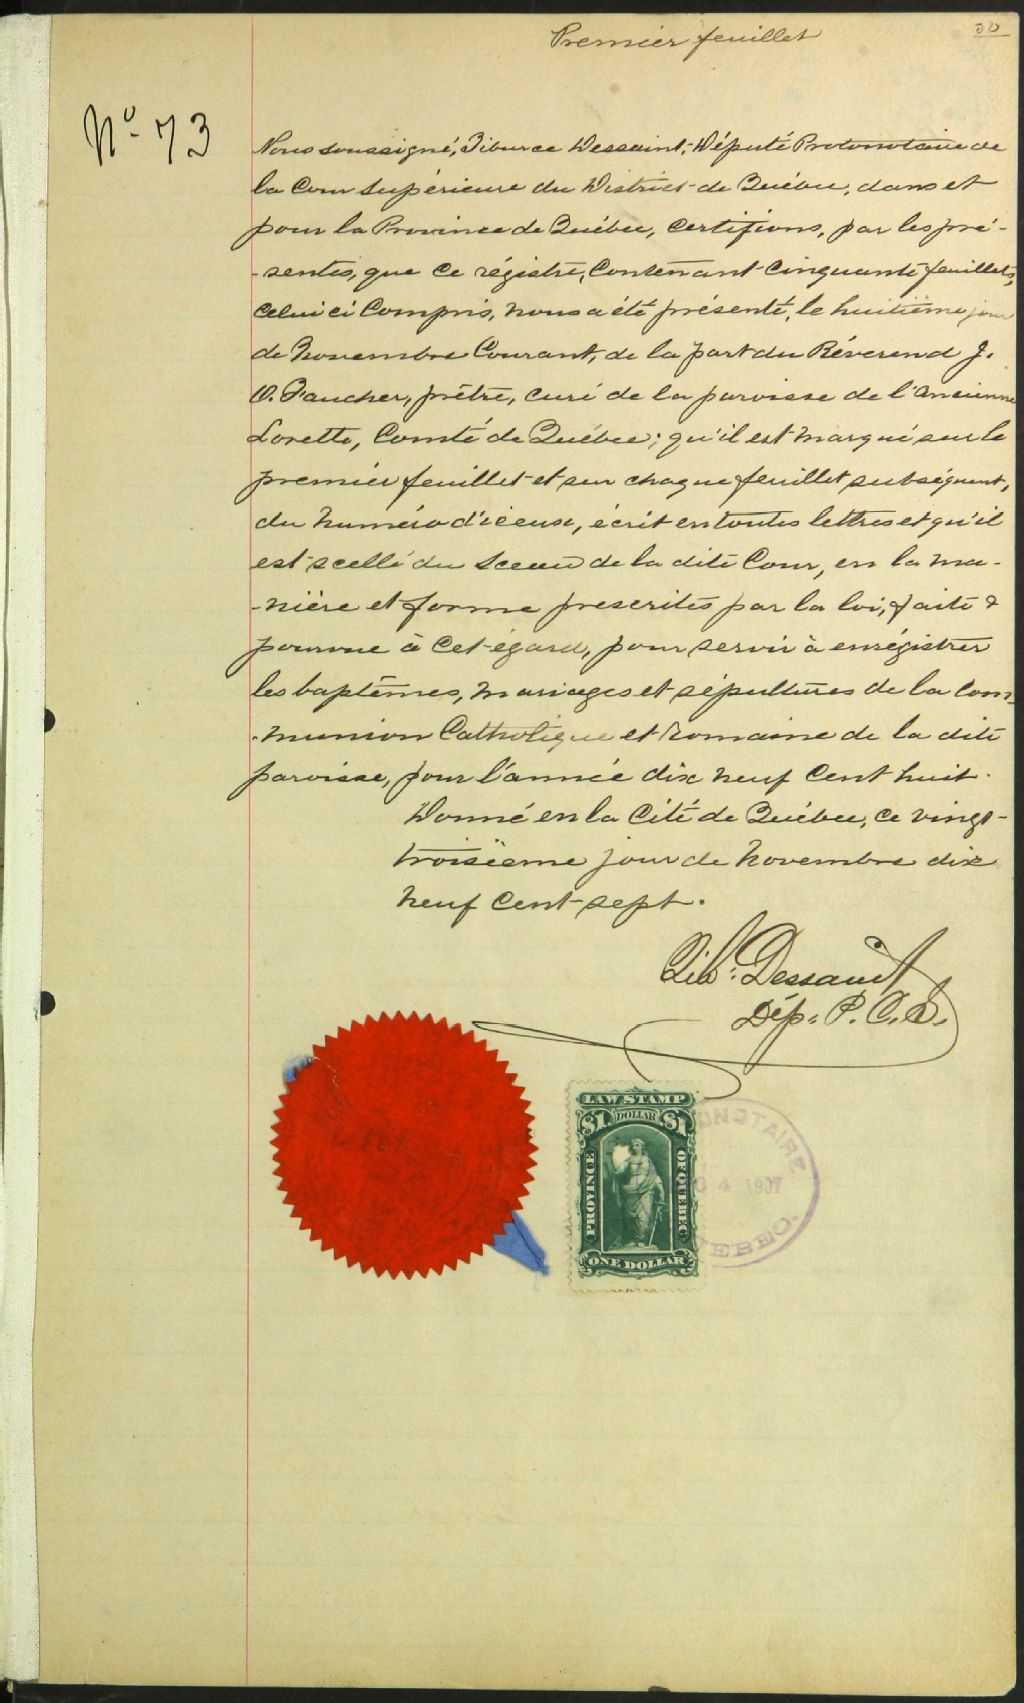 Premier feuillet
50
No 73
Nous soussigné, Tiburce Dessaint, Député Protonotaire de
la Cour Supérieure du District de Québec, dans et
pour la Province de Québec, certifions, par les pré-
-sentes, que ce régistre, contenant cinquante feuillets,
celui ci compris, nous a été présenté, le huitième jour
de Novembre courant, de la part du Révérend J.
O. Faucher, prêtre, curé de la paroisse de l'Ancienne
Lorette, Comté de Québec; qu'il est marqué sur le
premier feuillet et sur chaque feuillet subséquent,
du numéro d'iceux, écrit en toutes lettres et qu'il
est scellé du sceau de la dite Cour, en la ma-
-nière et forme prescrites par la loi, faite &
pourvue à cet égard, pour servir à enrégistrer
les baptêmes, mariages et sépultures de la Com-
-munion Catholique et Romaine de la dite
paroisse, pour l'année dix neuf cent huit.
Donné en la Cité de Québec, ce vingt-
troisième jour de Novembre dix
neuf cent sept.
Tib: Dessaint
Dép. P. C. S.
LAW STAMP
$1 DOLLAR $1
PROVINCE OF QUEBEC
ONE DOLLAR
ONOTAIRE
4 1907
EBEC.